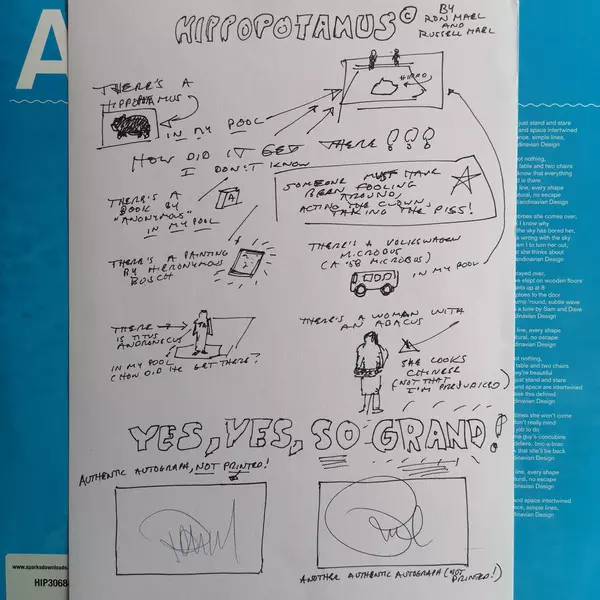 HIPPOPOTAMUS ©
BY
RON MAEL
AND
RUSSELL MAEL
A
THERE'S A
HIPPOPOTAMUS
IN MY POOL
HIPPO
HOW DID IT GET THERE ???
I DON'T KNOW
SOMEONE MUST HAVE
BEEN FOOLING
AROUND,
ACTING THE CLOWN,
TAKING THE PISS!
THERE'S A
BOOK BY
"ANONYMOUS"
IN MY POOL
A
THERE'S A PAINTING
BY HIERONYMOUS
BOSCH
THERE'S A VOLKSWAGEN
MICROBUS
(A '58 MICROBUS)
IN MY POOL
THERE
IS TITUS
ANDRONICUS
IN MY POOL
(HOW DID HE GET THERE?
THERE'S A WOMAN WITH
AN ABACUS
SHE LOOKS
CHINESE
(NOT THAT
I'M PREJUDICED)
YES, YES, SO GRAND!
AUTHENTIC AUTOGRAPH, NOT PRINTED!
ANOTHER AUTHENTIC AUTOGRAPH (NOT
PRINTED!)
just stand and stare
and space intertwined
nce, simple lines,
dinavian Design
ot nothing,
table and two chairs
know that everything
d is there
line, every shape
ural, no escape
candinavian Design
metimes she comes over,
I know why
the sky has bored her,
s wrong with the sky
am I to turn her out,
at she thinks about
candinavian Design
tayed over,
e slept on wooden floors
gets up at 8
ptoes to the door
ump 'round, subtle wave
a tune by Sam and Dave
dinavian Design
line, every shape
tural, no escape
inavian Design
ot nothing,
table and two chairs
ey're beautiful
just stand and stare
and space are intertwined
ve this defined
dinavian Design
times she won't come
don't really mind
job to do
me guy's concubine
delivers, bric-a-brac
that she'll be back
dinavian Design
line, every shape
tural, no escape
inavian Design
and space intertwined
nce, simple lines
inavian Design
www.sparksdownloads
HIP306